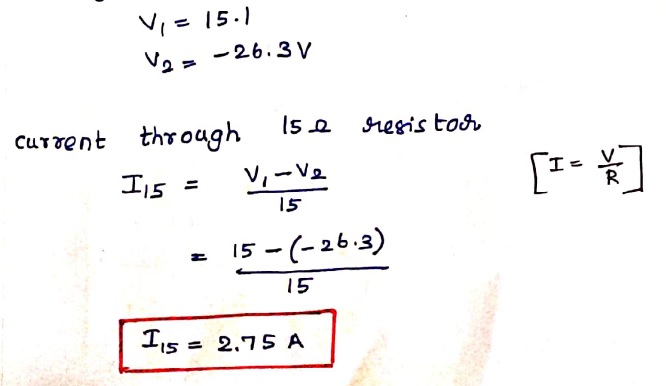 V₁ = 15.1
V₂ = -26.3 V
current through 15 Ω resistor
I₁₅ = (V₁ - V₂)/15 [I = V/R]
= (15 - (-26.3))/15
I₁₅ = 2.75 A